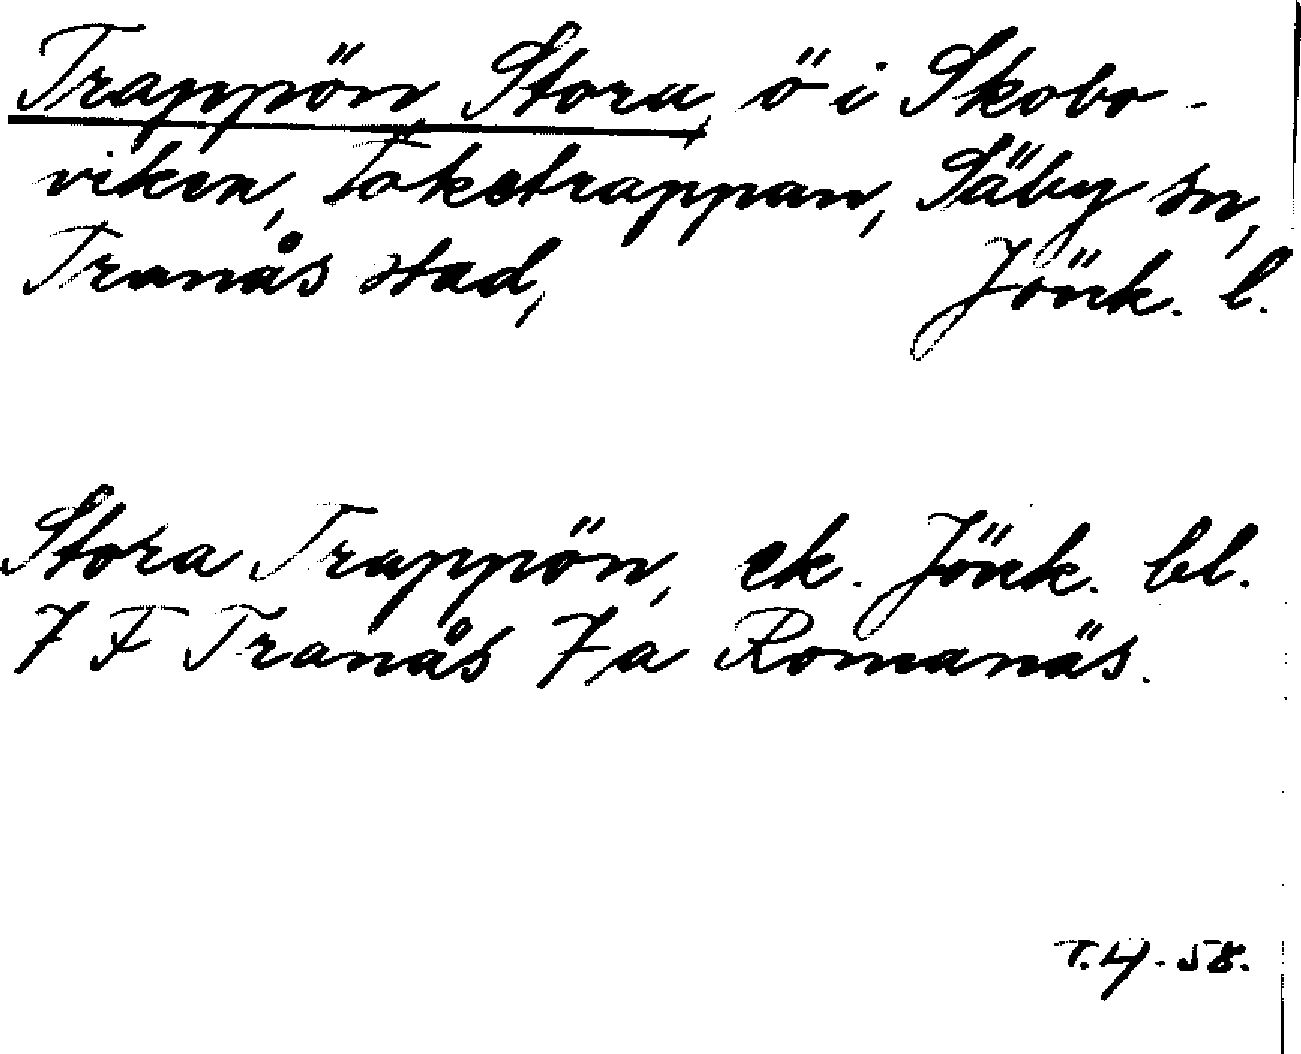 Trappön, Stora, ö i Skobo-
viken, Toketrappan, Säby sn,
Tranås stad, Jönk. l.
Stora Trappön, ek. Jönk. bl.
7 F Tranås 7, a Romanäs.
T.H-58.